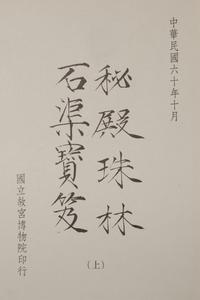 中華民國六十年十月
秘殿珠林
石渠寶笈
（上）
國立故宮博物院印行